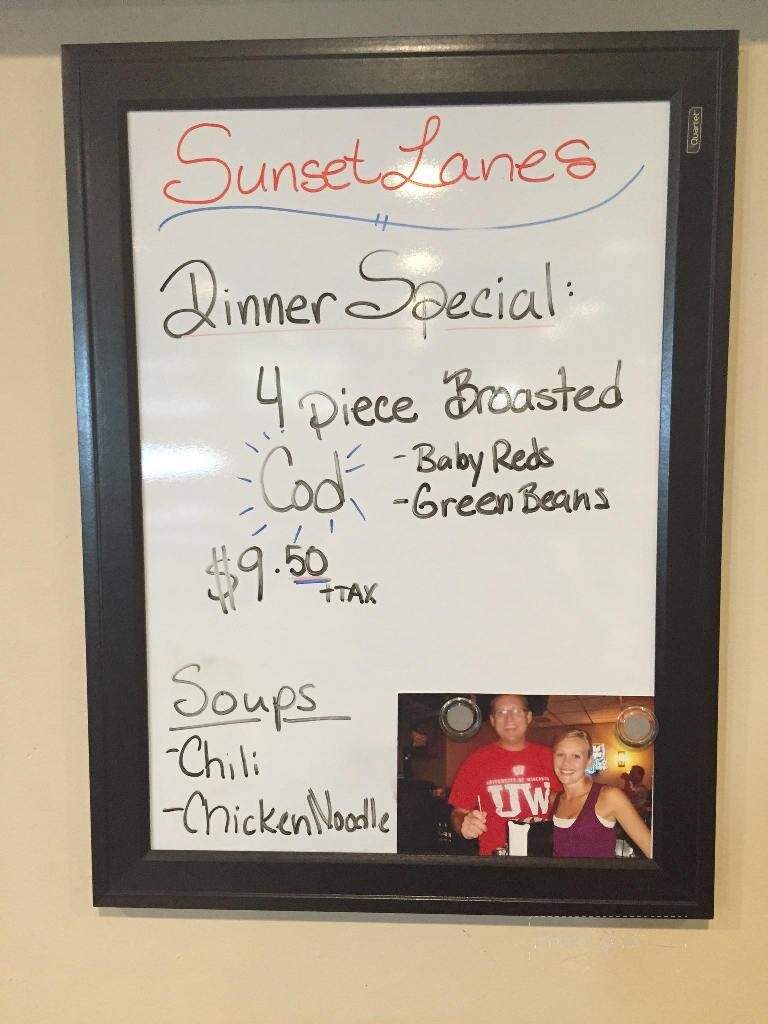 Quartet
Sunset Lanes
Dinner Special:
4 piece Broasted
Cod
- Baby Reds
- Green Beans
$9.50
+TAX
Soups
- Chili
- Chicken Noodle
UNIVERSITY OF WISCONSIN
UW